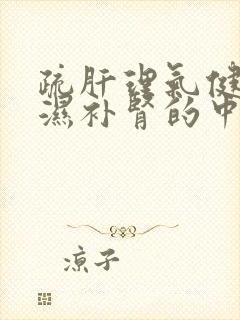 疏肝理氣健
濕补肾的中
凉子